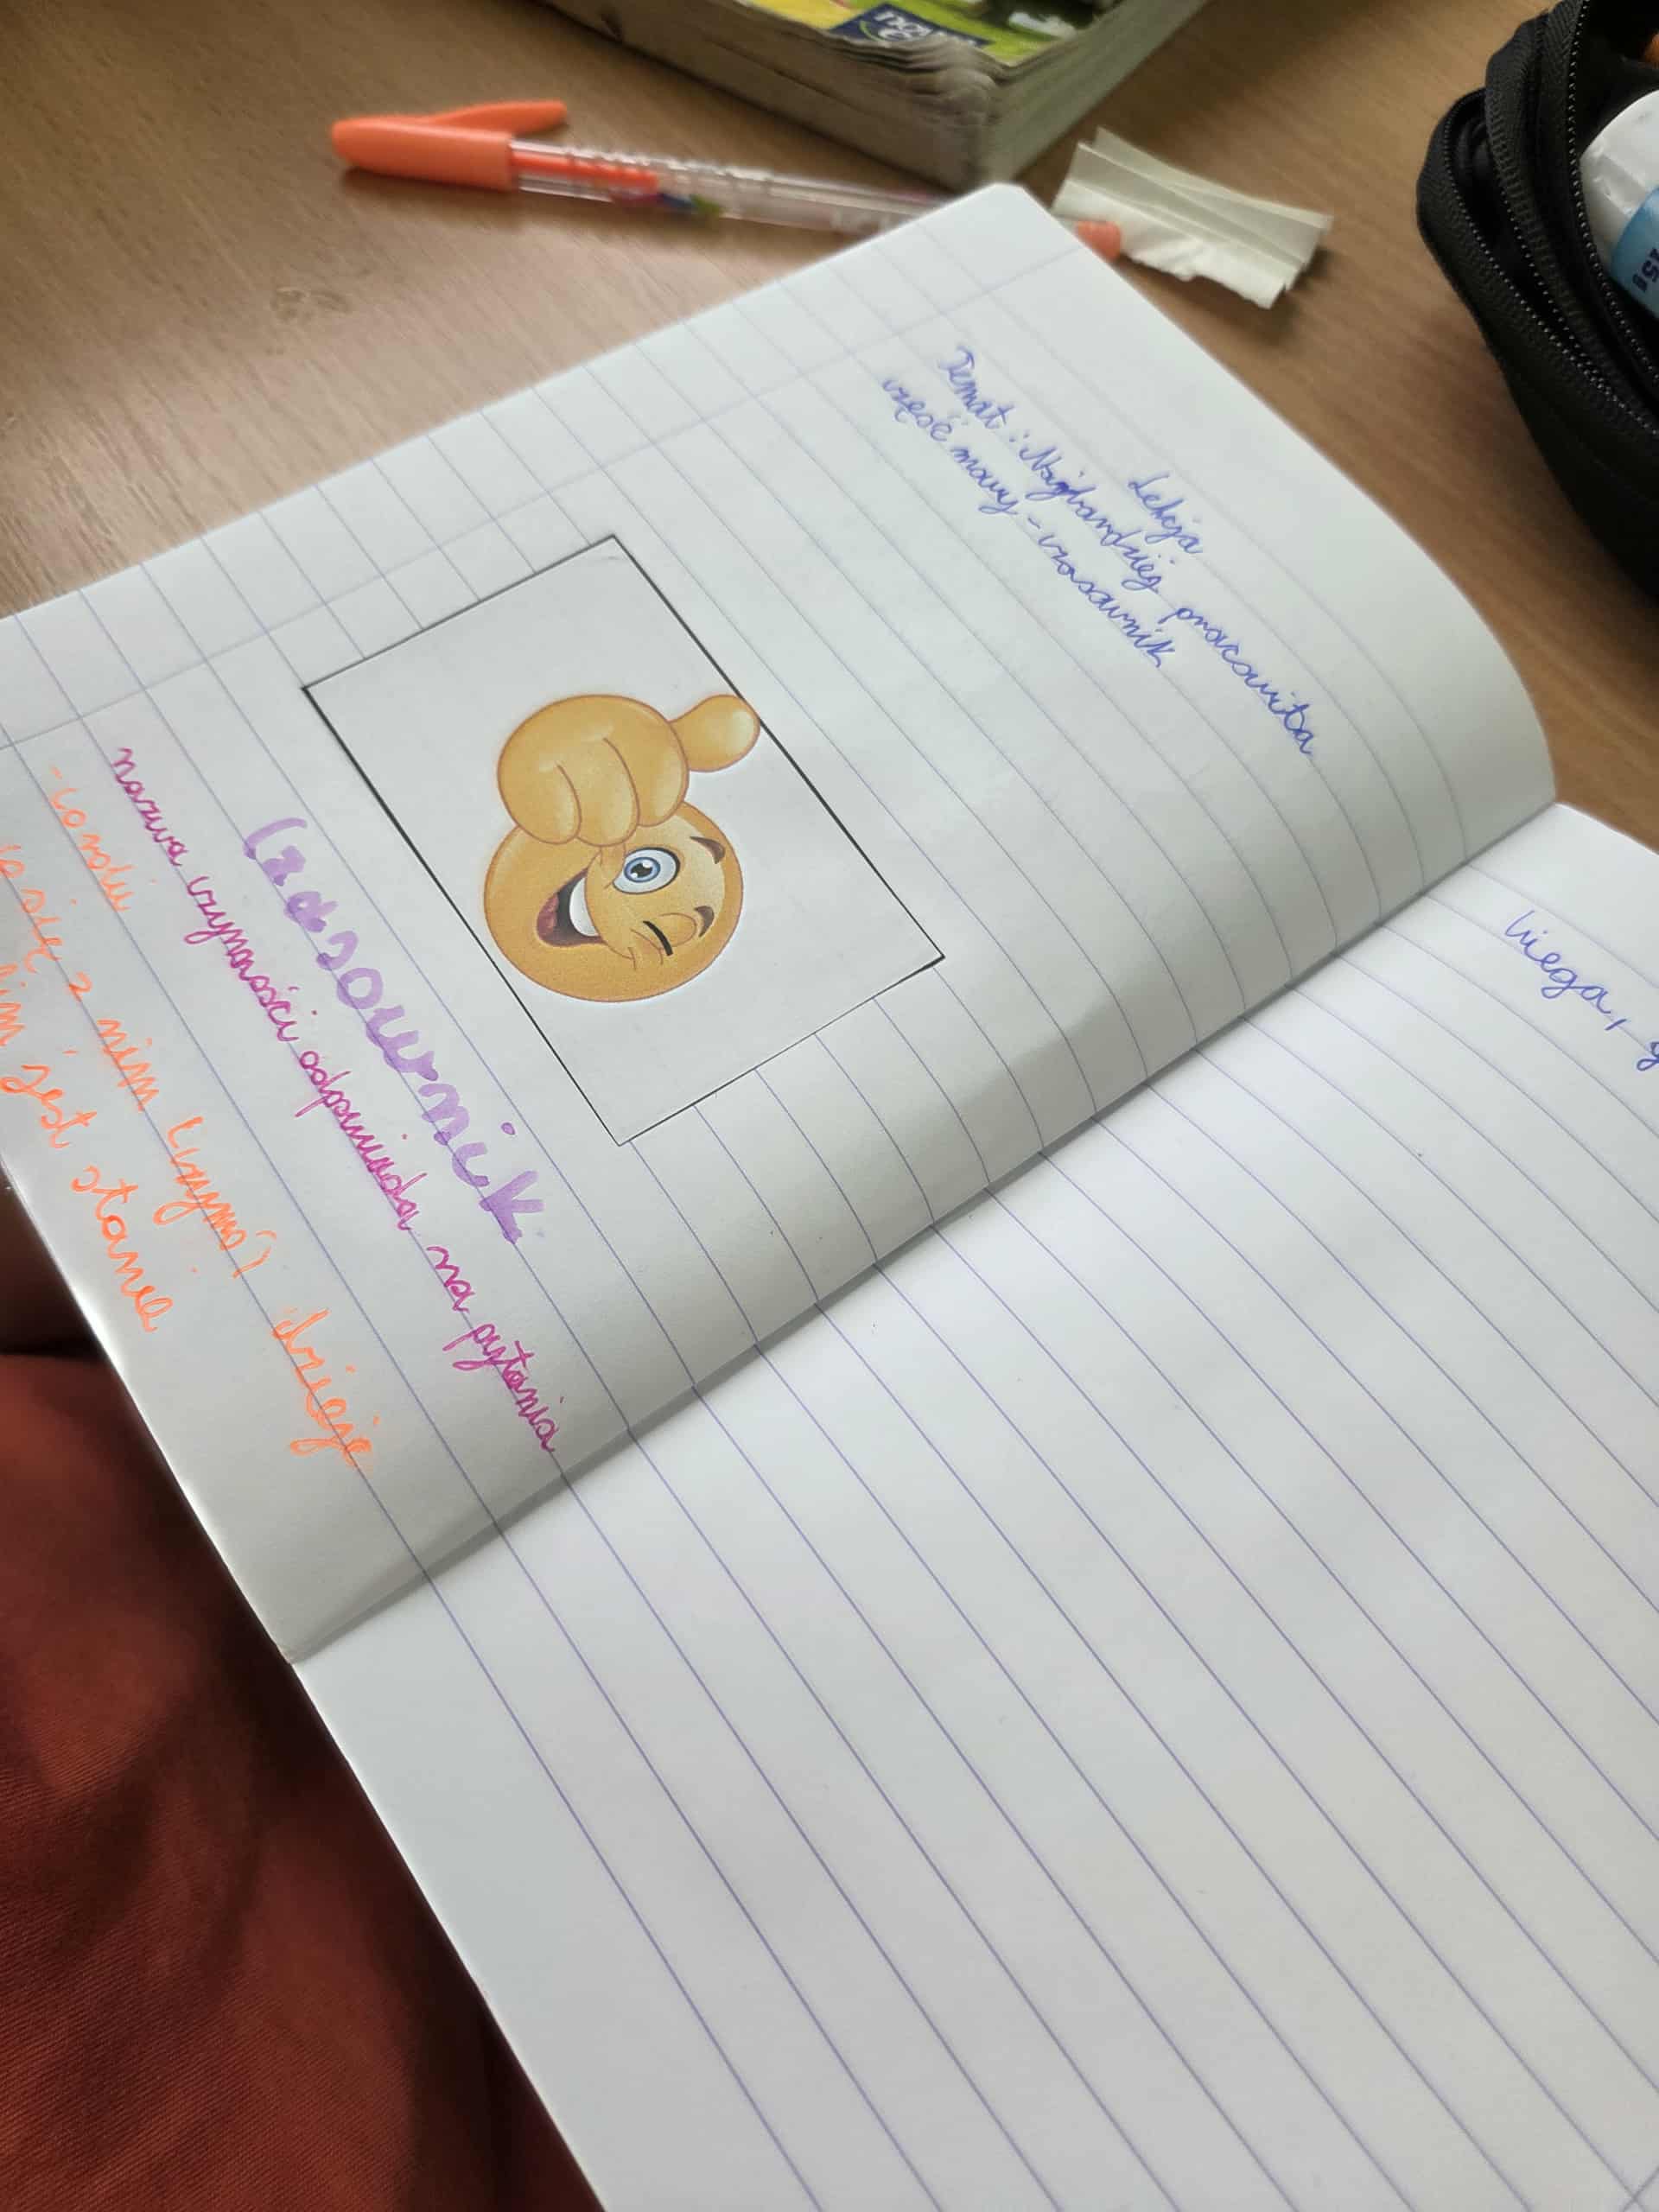 Lekcja
Temat: Najbardziej pracowita
część mowy - czasownik
Czasownik
nazwa czynności odpowiada na pytania
- co robi
co się z nim (czymś) dzieje
jest stanie
biega,
nowa